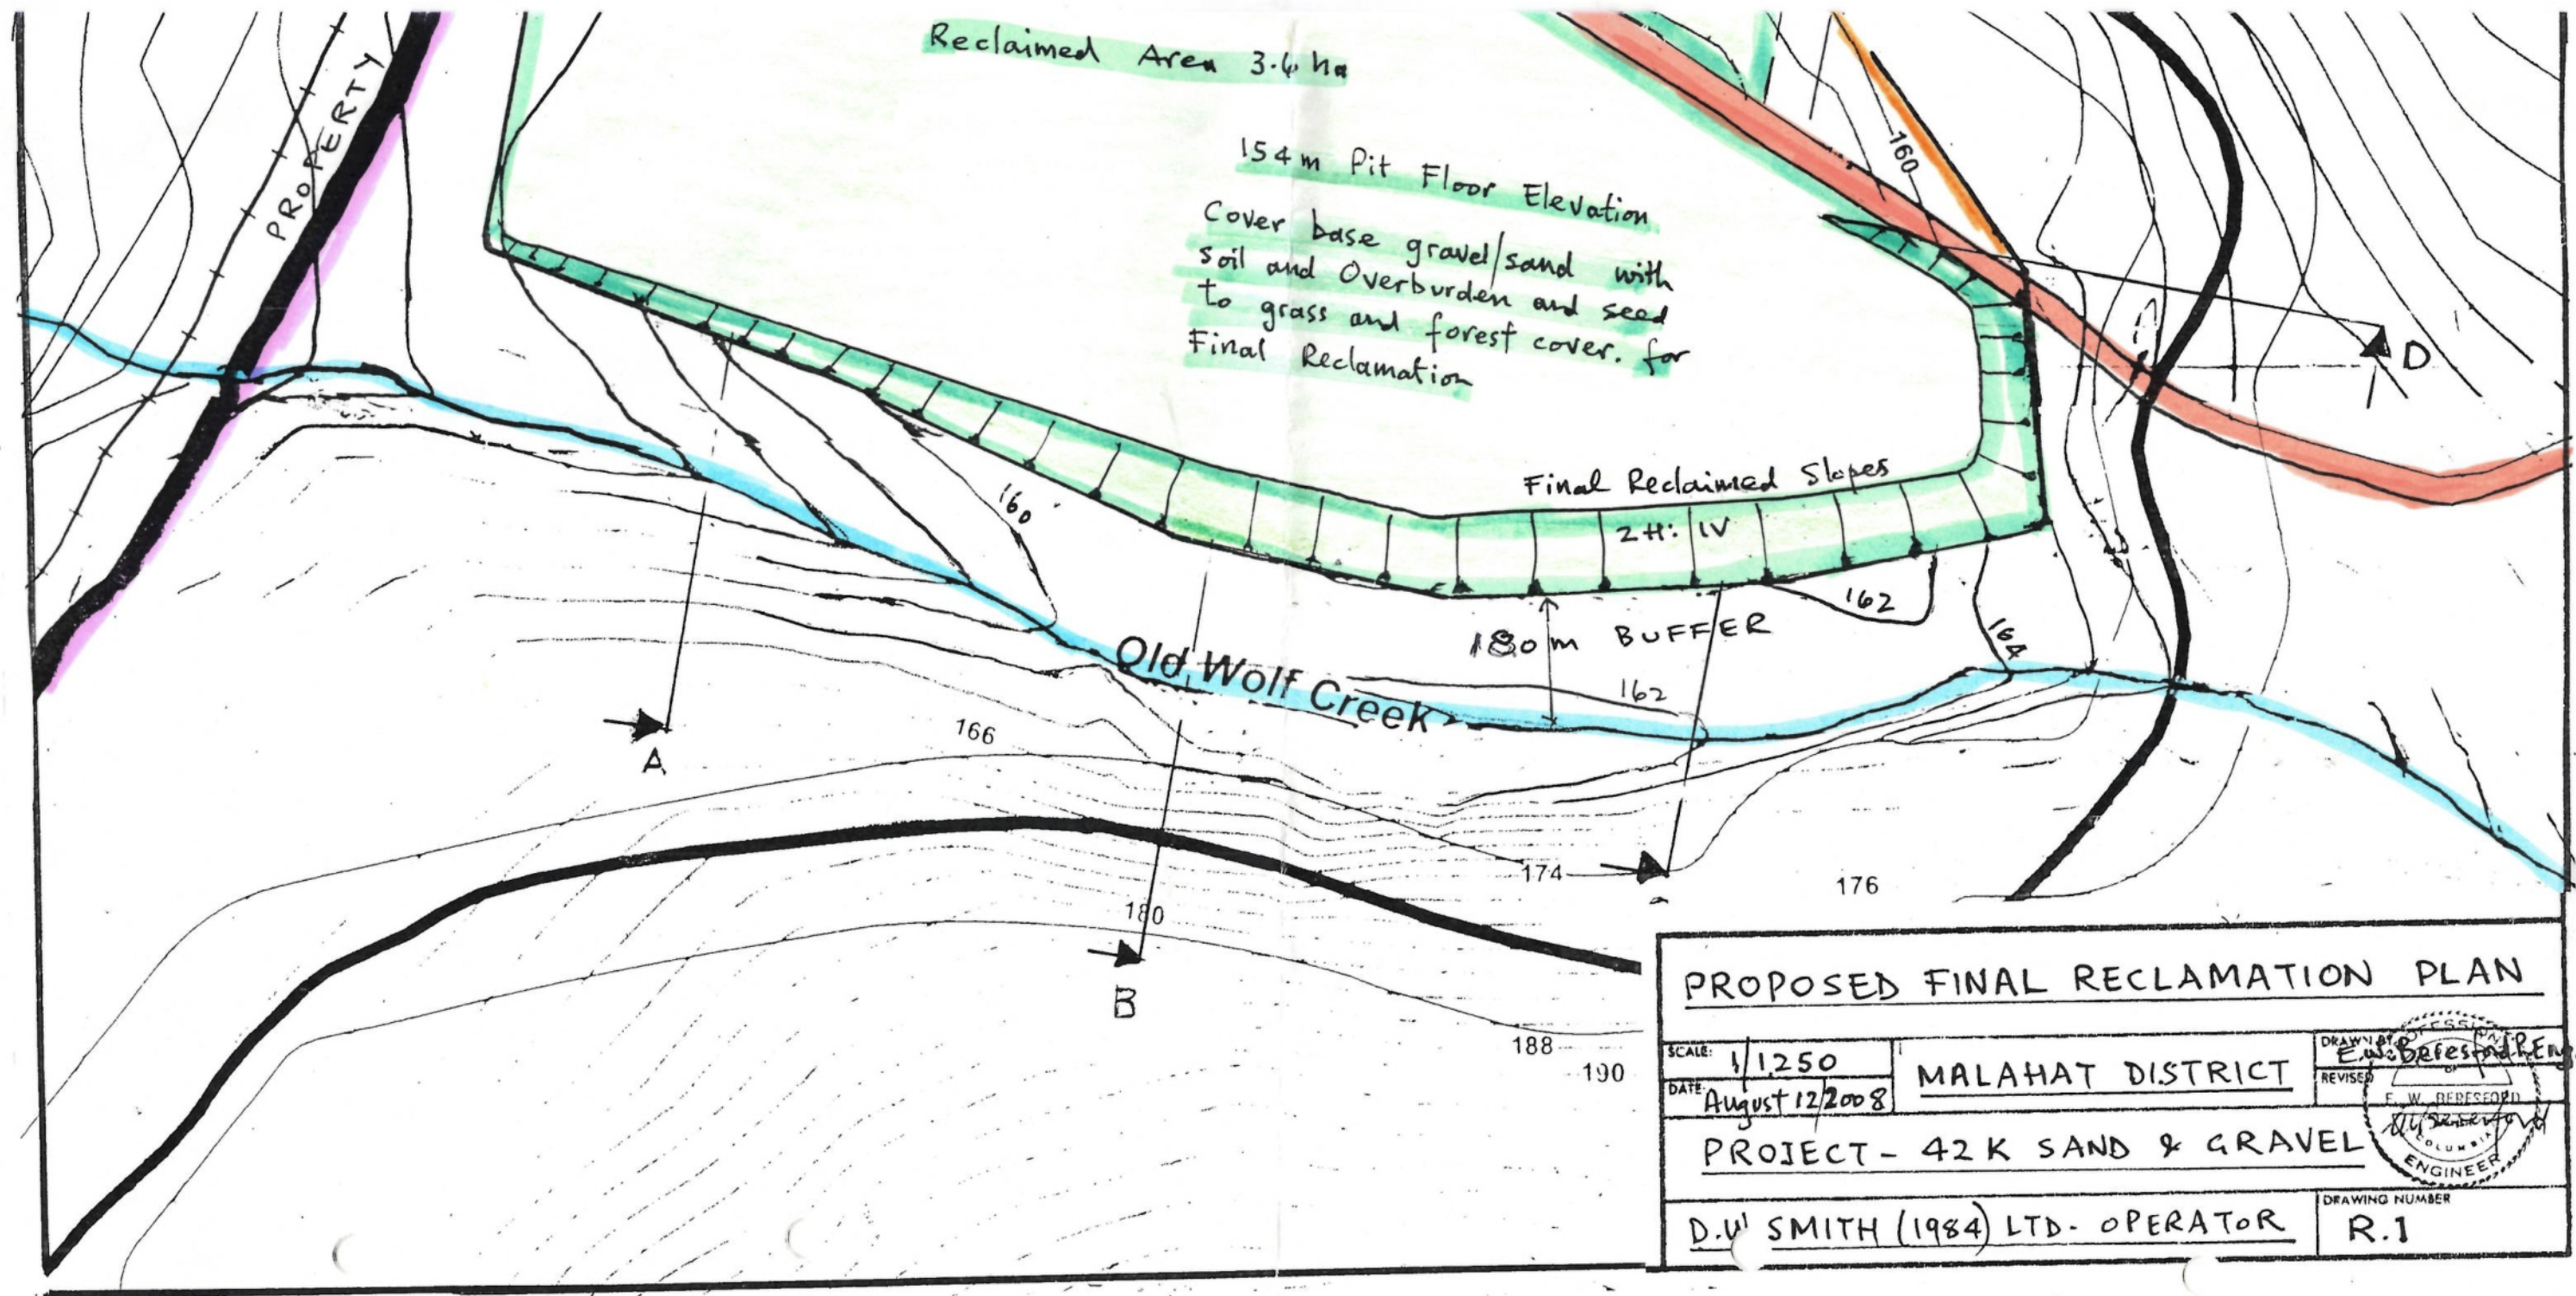 Reclaimed Area 3.6 ha
PROPERTY
154m Pit Floor Elevation
Cover base gravel/sand with
soil and Overburden and seed
to grass and forest cover. for
Final Reclamation
160
D
Final Reclaimed Slopes
2H: 1V
160
162
180m BUFFER
164
162
Old Wolf Creek
A
166
174
176
180
B
188
190
PROPOSED FINAL RECLAMATION PLAN
SCALE: 1/1250
MALAHAT DISTRICT
DRAWN BY E.W. Beresford P.Eng
REVISED
DATE: August 12/2008
E. W. BERESFORD
COLUMBIA
ENGINEER
PROJECT - 42K SAND & GRAVEL
D.W SMITH (1984) LTD. OPERATOR
DRAWING NUMBER
R.1